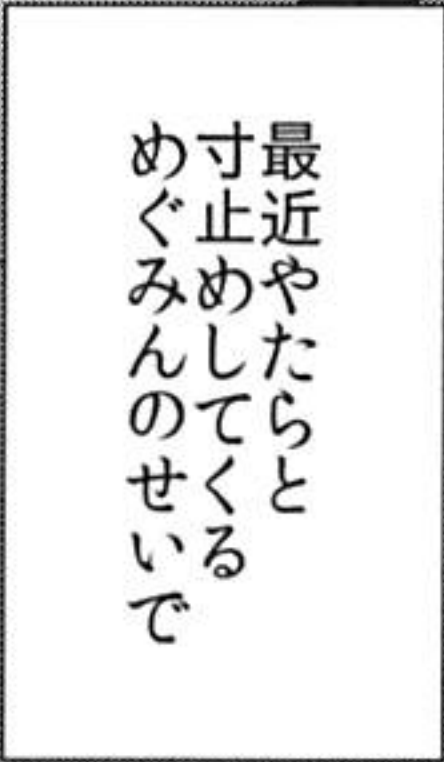 最近やたらと
寸止めしてくる
めぐみんのせいで